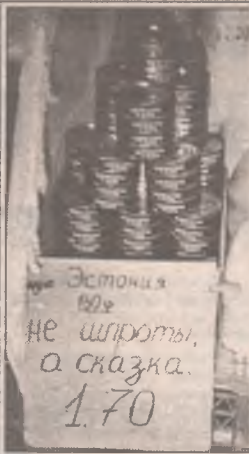 Эстония
150г
не шпроты,
а сказка.
1.70